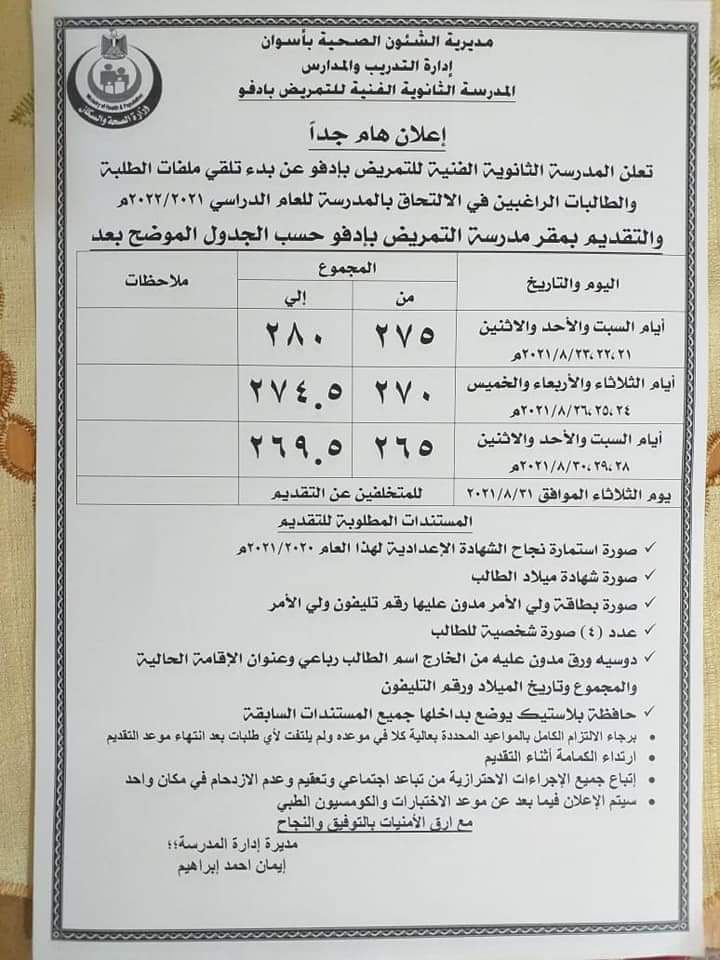 مديرية الشئون الصحية بأسوان
إدارة التدريب والمدارس
المدرسة الثانوية الفنية للتمريض بادفو
Ministry of Health & Population
وزارة الصحة والسكان
إعلان هام جداً
تعلن المدرسة الثانوية الفنية للتمريض بإدفو عن بدء تلقي ملفات الطلبة
والطالبات الراغبين في الالتحاق بالمدرسة للعام الدراسي ٢٠٢٢/٢٠٢١م
والتقديم بمقر مدرسة التمريض بإدفو حسب الجدول الموضح بعد
اليوم والتاريخ المجموع ملاحظات
من إلي
أيام السبت والأحد والاثنين ٢٧٥ ٢٨٠
٢٠٢١/٨/٢٣،٢٢،٢١م
أيام الثلاثاء والأربعاء والخميس ٢٧٠ ٢٧٤.٥
٢٠٢١/٨/٢٦،٢٥،٢٤م
أيام السبت والأحد والاثنين ٢٦٥ ٢٦٩.٥
٢٠٢١/٨/٣٠،٢٩،٢٨م
يوم الثلاثاء الموافق ٢٠٢١/٨/٣١ للمتخلفين عن التقديم
المستندات المطلوبة للتقديم
✓ صورة استمارة نجاح الشهادة الإعدادية لهذا العام ٢٠٢١/٢٠٢٠م
✓ صورة شهادة ميلاد الطالب
✓ صورة بطاقة ولي الأمر مدون عليها رقم تليفون ولي الأمر
✓ عدد (٤) صورة شخصية للطالب
✓ دوسيه ورق مدون عليه من الخارج اسم الطالب رباعي وعنوان الإقامة الحالية
والمجموع وتاريخ الميلاد ورقم التليفون
✓ حافظة بلاستيك يوضع بداخلها جميع المستندات السابقة
• برجاء الالتزام الكامل بالمواعيد المحددة بعالية كلا في موعده ولم يلتفت لأي طلبات بعد انتهاء موعد التقديم
• ارتداء الكمامة أثناء التقديم
• إتباع جميع الإجراءات الاحترازية من تباعد اجتماعي وتعقيم وعدم الازدحام في مكان واحد
• سيتم الإعلان فيما بعد عن موعد الاختبارات والكومسيون الطبي
مع ارق الأمنيات بالتوفيق والنجاح
مديرة إدارة المدرسة؛؛
إيمان احمد إبراهيم